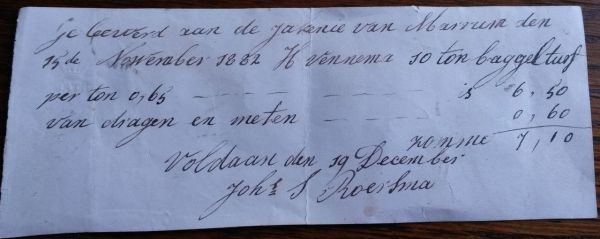 Je leewerd aan de Jakencie van Marrum den
15 de November 1882 H Wennema 10 ton baggelturf
per ton 0,65 - - - - - - - - - is 6,50
van dragen en meten - - - - - - 0,60
zomme 7,10
Voldaan den 19 December
Johs S Roersma